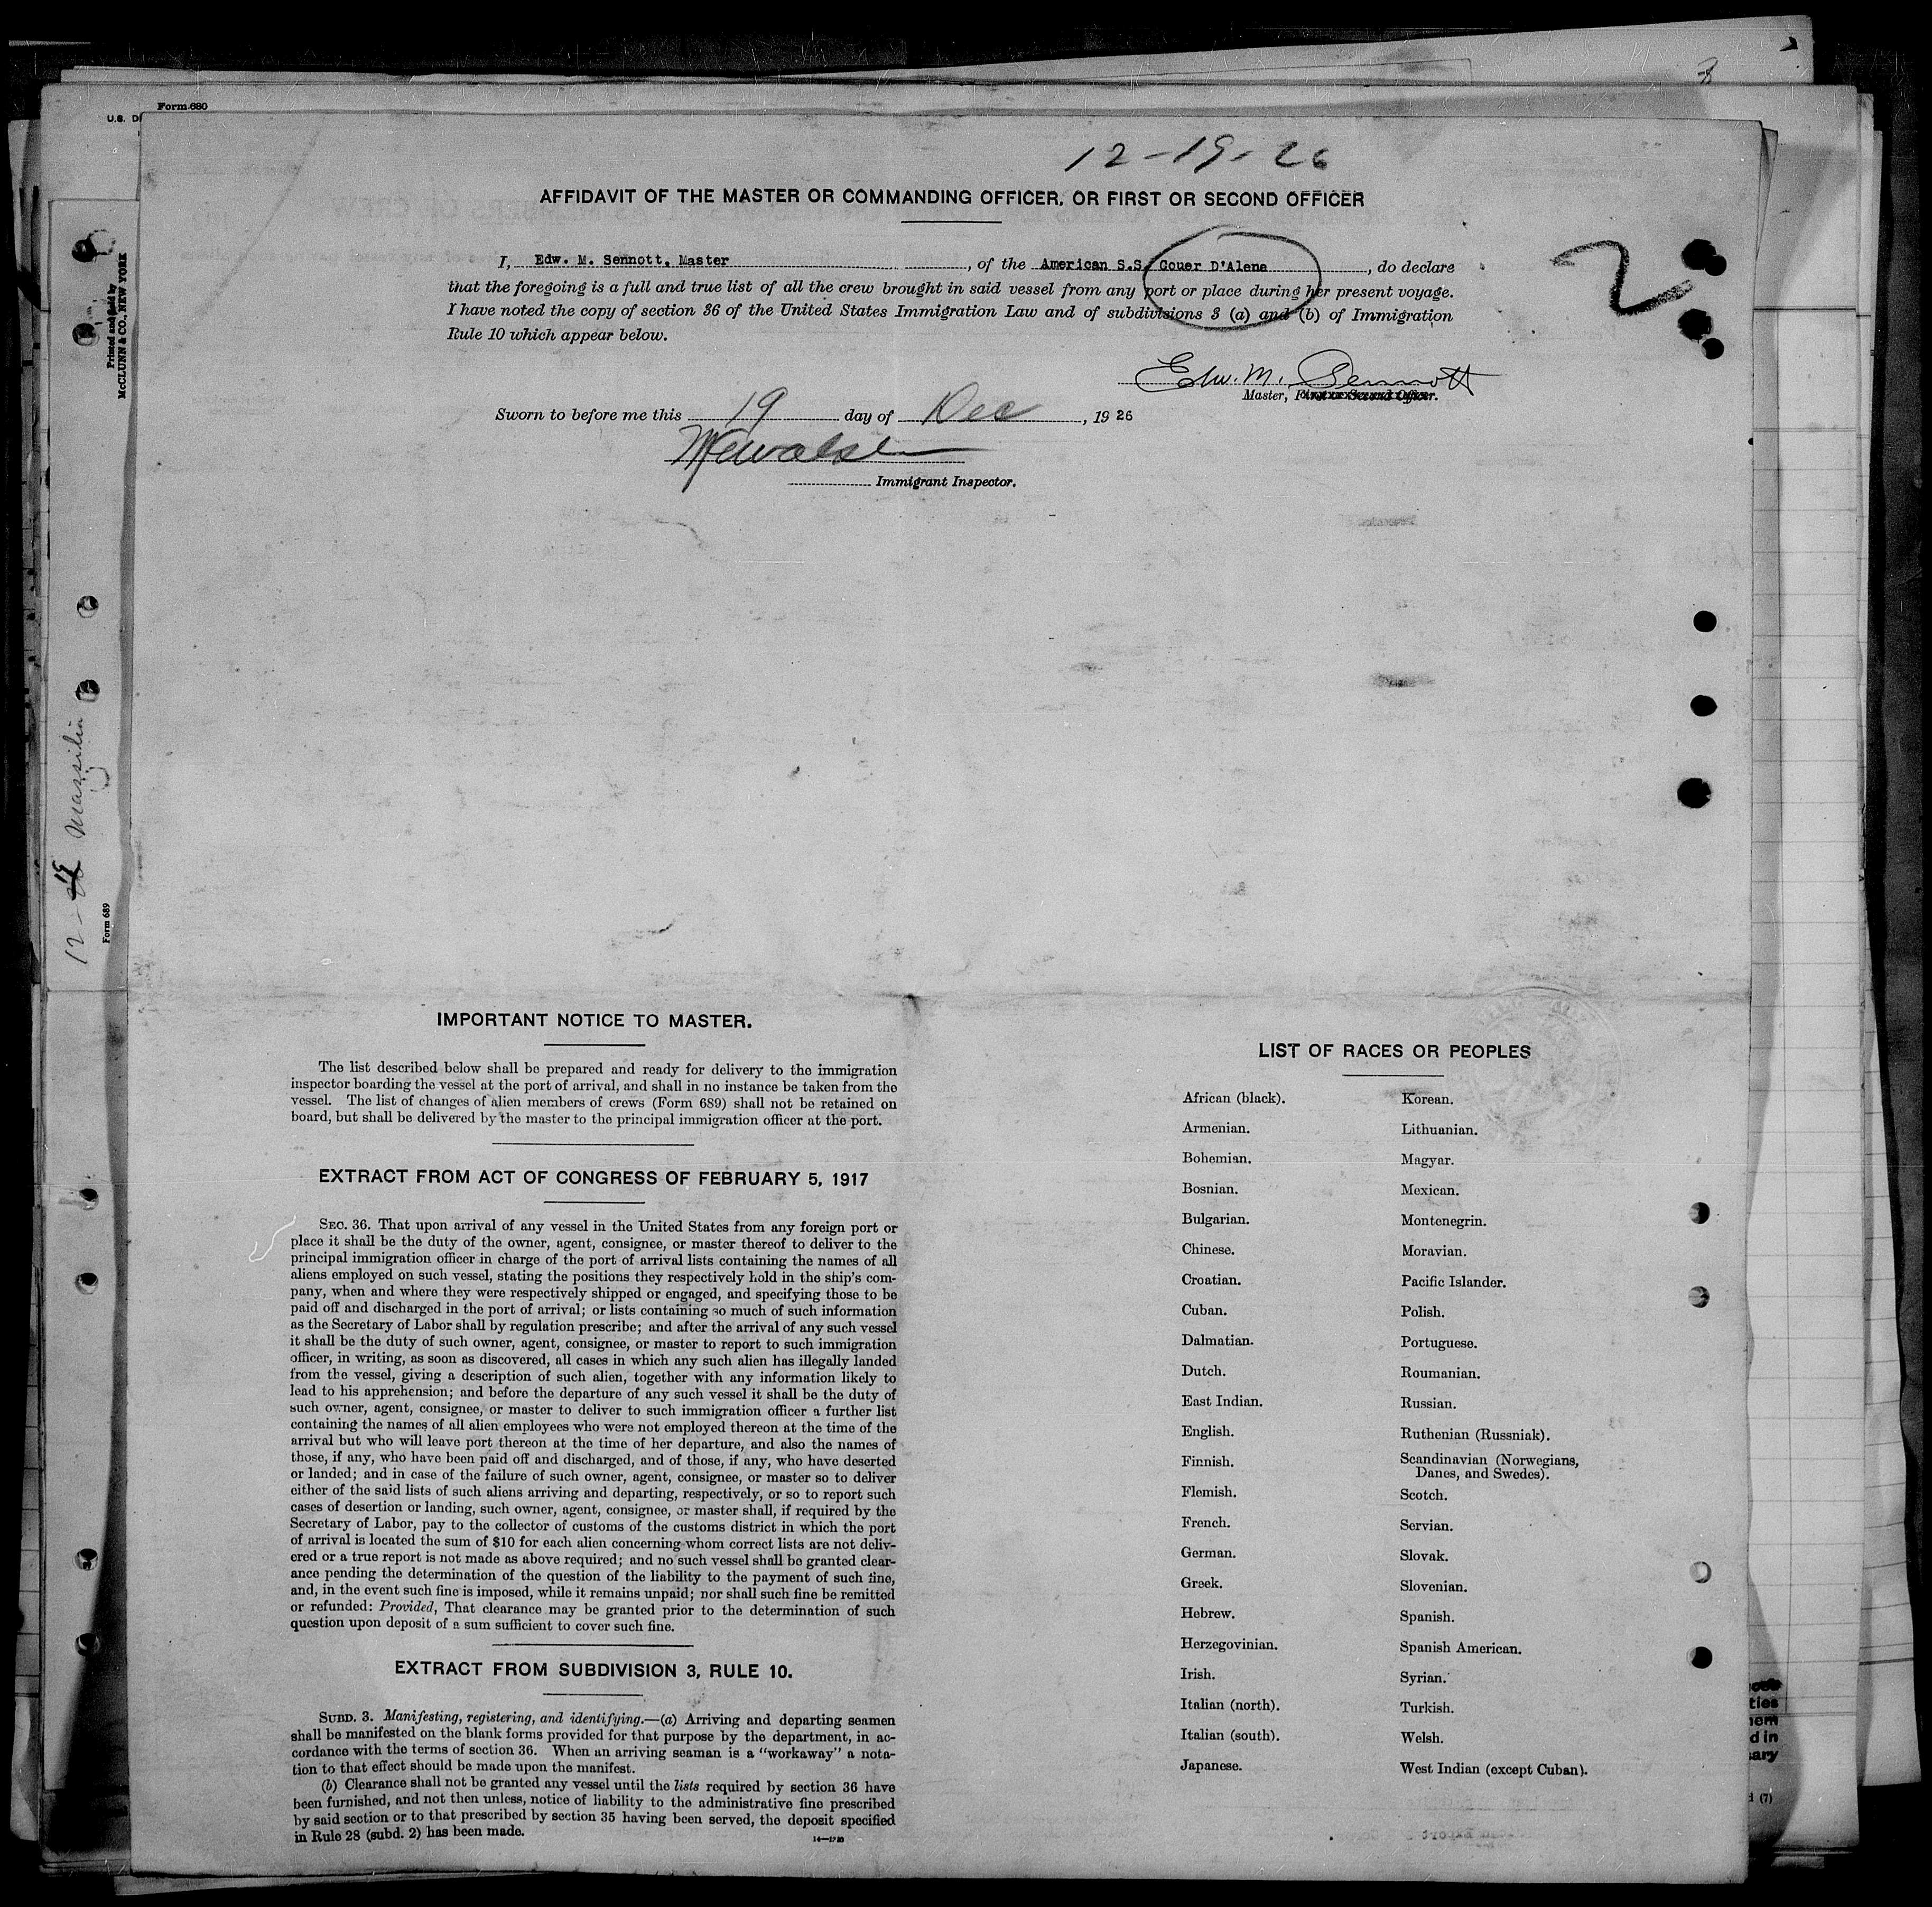 3
Form 680
U.S. D
12-19-26
AFFIDAVIT OF THE MASTER OR COMMANDING OFFICER, OR FIRST OR SECOND OFFICER
I, Edw. M. Sennott, Master, of the American S.S. Couer D'Alene, do declare
that the foregoing is a full and true list of all the crew brought in said vessel from any port or place during her present voyage.
I have noted the copy of section 36 of the United States Immigration Law and of subdivisions 3 (a) and (b) of Immigration
Rule 10 which appear below.
2
Edw. M. Sennott
Master, First or Second Officer.
Sworn to before me this 19 day of Dec, 1926
Immigrant Inspector.
Printed and Sold by
McCLUNN & CO., NEW YORK
12-19 Massilia
Form 689
IMPORTANT NOTICE TO MASTER.
The list described below shall be prepared and ready for delivery to the immigration
inspector boarding the vessel at the port of arrival, and shall in no instance be taken from the
vessel. The list of changes of alien members of crews (Form 689) shall not be retained on
board, but shall be delivered by the master to the principal immigration officer at the port.
EXTRACT FROM ACT OF CONGRESS OF FEBRUARY 5, 1917
SEC. 36. That upon arrival of any vessel in the United States from any foreign port or
place it shall be the duty of the owner, agent, consignee, or master thereof to deliver to the
principal immigration officer in charge of the port of arrival lists containing the names of all
aliens employed on such vessel, stating the positions they respectively hold in the ship's com-
pany, when and where they were respectively shipped or engaged, and specifying those to be
paid off and discharged in the port of arrival; or lists containing so much of such information
as the Secretary of Labor shall by regulation prescribe; and after the arrival of any such vessel
it shall be the duty of such owner, agent, consignee, or master to report to such immigration
officer, in writing, as soon as discovered, all cases in which any such alien has illegally landed
from the vessel, giving a description of such alien, together with any information likely to
lead to his apprehension; and before the departure of any such vessel it shall be the duty of
such owner, agent, consignee, or master to deliver to such immigration officer a further list
containing the names of all alien employees who were not employed thereon at the time of the
arrival but who will leave port thereon at the time of her departure, and also the names of
those, if any, who have been paid off and discharged, and of those, if any, who have deserted
or landed; and in case of the failure of such owner, agent, consignee, or master so to deliver
either of the said lists of such aliens arriving and departing, respectively, or so to report such
cases of desertion or landing, such owner, agent, consignee, or master shall, if required by the
Secretary of Labor, pay to the collector of customs of the customs district in which the port
of arrival is located the sum of $10 for each alien concerning whom correct lists are not deliv-
ered or a true report is not made as above required; and no such vessel shall be granted clear-
ance pending the determination of the question of the liability to the payment of such fine,
and, in the event such fine is imposed, while it remains unpaid; nor shall such fine be remitted
or refunded: Provided, That clearance may be granted prior to the determination of such
question upon deposit of a sum sufficient to cover such fine.
EXTRACT FROM SUBDIVISION 3, RULE 10.
SUBD. 3. Manifesting, registering, and identifying.—(a) Arriving and departing seamen
shall be manifested on the blank forms provided for that purpose by the department, in ac-
cordance with the terms of section 36. When an arriving seaman is a "workaway" a nota-
tion to that effect should be made upon the manifest.
(b) Clearance shall not be granted any vessel until the lists required by section 36 have
been furnished, and not then unless, notice of liability to the administrative fine prescribed
by said section or to that prescribed by section 35 having been served, the deposit specified
in Rule 28 (subd. 2) has been made.
LIST OF RACES OR PEOPLES
African (black).
Armenian.
Bohemian.
Bosnian.
Bulgarian.
Chinese.
Croatian.
Cuban.
Dalmatian.
Dutch.
East Indian.
English.
Finnish.
Flemish.
French.
German.
Greek.
Hebrew.
Herzegovinian.
Irish.
Italian (north).
Italian (south).
Japanese.
Korean.
Lithuanian.
Magyar.
Mexican.
Montenegrin.
Moravian.
Pacific Islander.
Polish.
Portuguese.
Roumanian.
Russian.
Ruthenian (Russniak).
Scandinavian (Norwegians,
Danes, and Swedes).
Scotch.
Servian.
Slovak.
Slovenian.
Spanish.
Spanish American.
Syrian.
Turkish.
Welsh.
West Indian (except Cuban).
ties
hem
d in
ary
d (7)